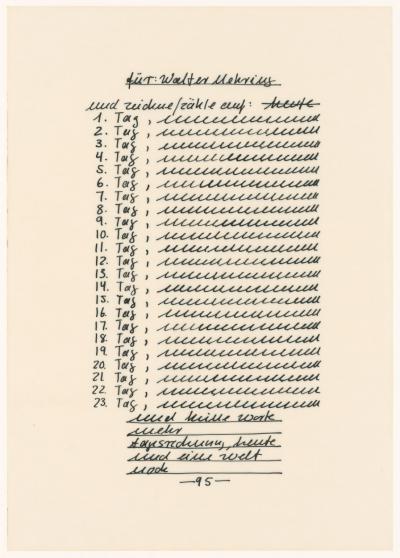 für: Walter Mehring
und zeichne/zähle auf: heute
1. Tag,
2. Tag,
3. Tag,
4. Tag,
5. Tag,
6. Tag,
7. Tag,
8. Tag,
9. Tag,
10. Tag,
11. Tag,
12. Tag,
13. Tag,
14. Tag,
15. Tag,
16. Tag,
17. Tag,
18. Tag,
19. Tag,
20. Tag,
21. Tag,
22. Tag,
23. Tag,
und keine worte
mehr
tagsrechnung, heute
und eine welt
noch
—95—